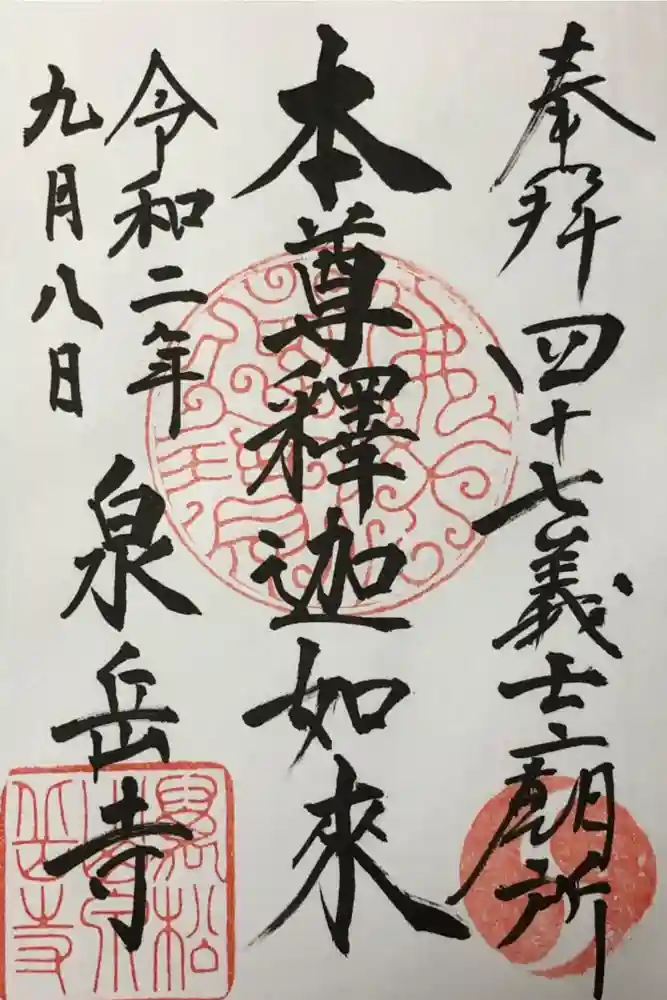 奉拝 四十七義士廟所
本尊釋迦如來
令和二年
九月八日
泉岳寺
萬松
泉
岳寺